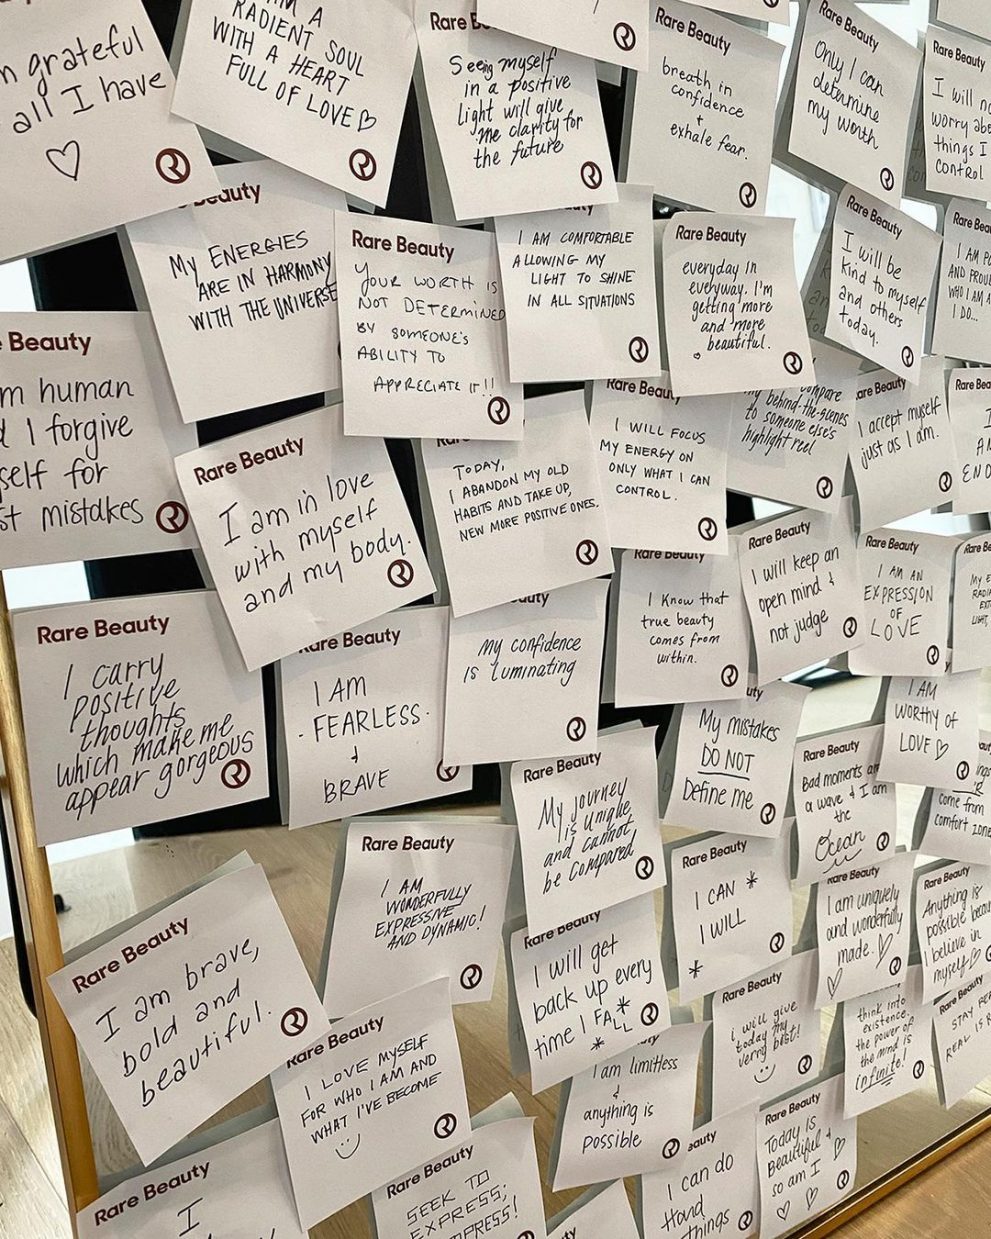 grateful
all I have
A
RADIENT SOUL
WITH A HEART
FULL OF LOVE
Rare Beauty
Seeing myself
in a positive
light will give
me clarity for
the future
Rare Beauty
breath in
confidence
+
exhale fear.
Rare Beauty
Only I can
determine
my worth
Rare Beauty
I will
worry
things I
control
Beauty
My ENERGIES
ARE IN HARMONY
WITH THE UNIVERSE
Rare Beauty
YOUR WORTH IS
NOT DETERMINED
BY SOMEONE'S
ABILITY TO
APPRECIATE IT!!
I AM COMFORTABLE
ALLOWING MY
LIGHT TO SHINE
IN ALL SITUATIONS
Rare Beauty
everyday in
everyway. I'm
getting more
and more
beautiful.
Rare Beauty
I will be
kind to myself
and others
today.
Rare Beauty
I AM
AND
WHO I AM
I DO...
Beauty
human
I forgive
self for
mistakes
Rare Beauty
I am in love
with myself
and my body.
TODAY,
I ABANDON MY OLD
HABITS AND TAKE UP,
NEW MORE POSITIVE ONES.
Rare Beauty
I WILL FOCUS
MY ENERGY ON
ONLY WHAT I CAN
CONTROL.
compare
my behind-the-scenes
to someone else's
highlight reel
Rare Beauty
I accept myself
just as I am.
Rare
I
Rare Beauty
I carry
positive
thoughts
which make me
appear gorgeous
Rare Beauty
I AM
- FEARLESS -
+
BRAVE
My confidence
is luminating
Rare Beauty
I know that
true beauty
comes from
within.
Rare Beauty
I will keep an
open mind +
not judge
Rare Beauty
I AM AN
EXPRESSION
OF
LOVE
Rare
MY
LIGHT,
Rare Beauty
My journey
is unique
and cannot
be compared
My mistakes
DO NOT
Define me
Rare Beauty
Bad moments are
a wave + I am
the
Ocean
I AM
WORTHY OF
LOVE
come from
comfort zone
Rare Beauty
I AM
WONDERFULLY
EXPRESSIVE
AND DYNAMIC!
Rare Beauty
I will get
back up every
time I FALL
Rare Beauty
I CAN *
I WILL
*
Rare Beauty
I am uniquely
and wonderfully
made
Rare Beauty
Anything is
possible
I believe in
myself
Rare Beauty
I am brave,
bold and
beautiful.
Rare Beauty
I LOVE MYSELF
FOR WHO I AM AND
WHAT I'VE BECOME
Rare Beauty
I am limitless
+
anything is
possible
Rare Beauty
i will give
today my
verry best!
think into
existence.
the power of
the mind is
infinite!
Rare Beauty
STAY
REAL
Rare Beauty
I
Rare Beauty
SEEK TO
EXPRESS,
Beauty
I can do
Hard
things
Rare Beauty
Today is
Beautiful +
so am I